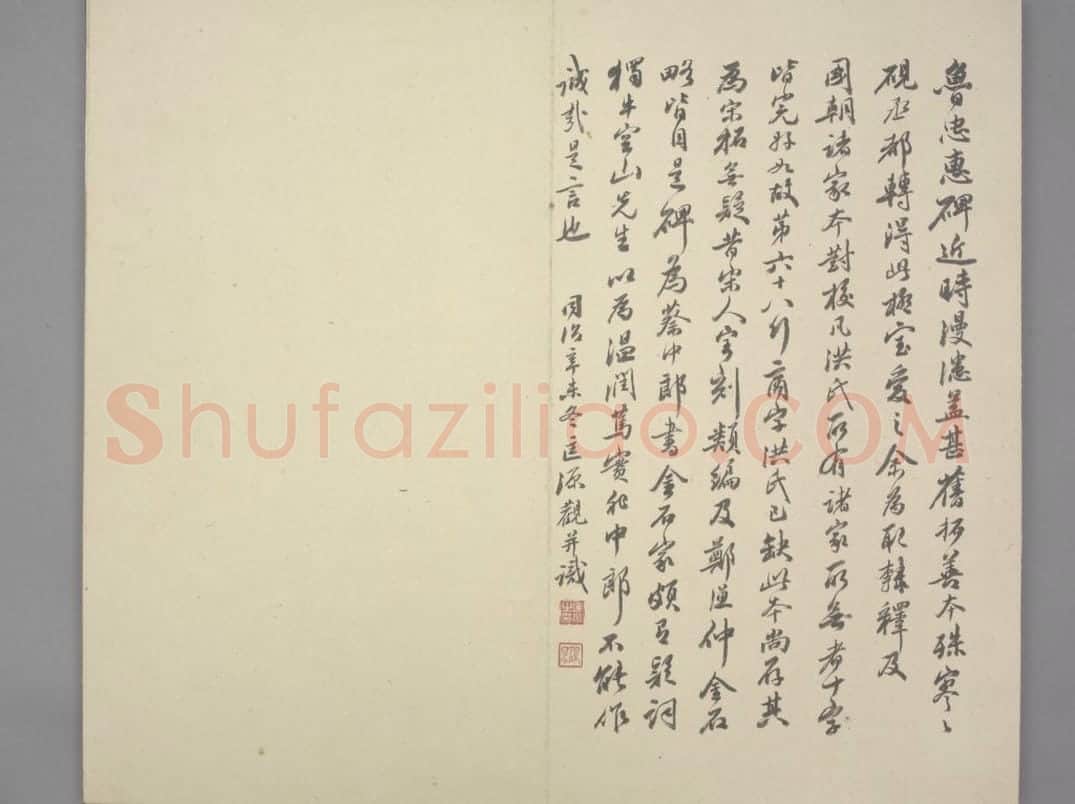 魯忠惠碑近時漫漶益甚舊拓善本殊寥〻
硯丞都轉得此極寶愛之余為取隸釋及
國朝諸家本對校凡洪氏所有諸家所無者十字
皆完好如故第六十八行商字洪氏已缺此本尚存其
為宋拓無疑昔宋人寶刻類編及鄭漁仲金石
略皆目是碑為蔡中郎書金石家頗有疑詞
獨牛空山先生以為溫潤篤實非中郎不能作
誠哉是言也 同治辛未冬匡源觀并識
Shufaziliao.COM